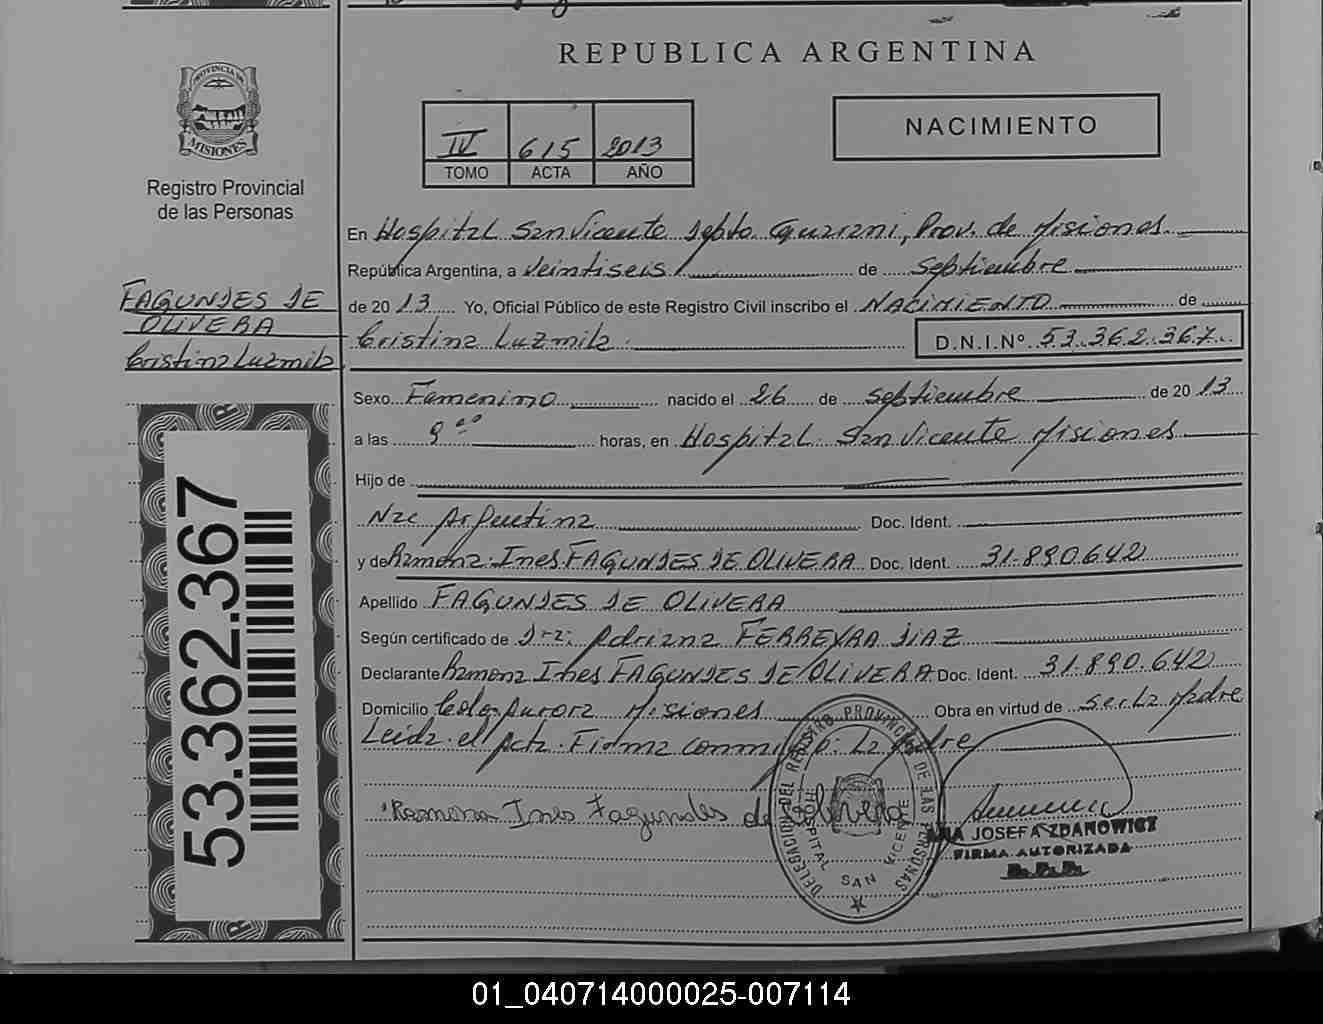 REPUBLICA ARGENTINA
PROVINCIA DE
MISIONES
Registro Provincial
de las Personas
IV 615 2013
TOMO ACTA AÑO
NACIMIENTO
En Hospital San Vicente Depto. Guarani, Prov. de Misiones
República Argentina, a Veintiseis de Septiembre
de 2013 Yo, Oficial Público de este Registro Civil inscribo el NACIMIENTO de
Cristina Luzmila D.N.I.Nº 53.362.367
FAGUNDES DE
OLIVERA
Cristina Luzmila
Sexo Femenino nacido el 26 de Septiembre de 2013
a las 9 horas, en Hospital San Vicente Misiones
Hijo de
Nac Argentina Doc. Ident.
y de Ramona Ines FAGUNDES DE OLIVERA Doc. Ident. 31.890.642
Apellido FAGUNDES DE OLIVERA
Según certificado de Dra: Adriana FERREYRA DIAZ
Declarante Ramona Ines FAGUNDES DE OLIVERA Doc. Ident. 31.890.642
Domicilio Colo. Aurora Misiones Obra en virtud de ser la Madre
Leida el Acta Firma conmigo. La Madre
Ramona Ines Fagundes de Olivera
DELEGACION DEL REGISTRO PROVINCIAL DE LAS PERSONAS
HOSPITAL SAN VICENTE
JOSEFA ZDANOWICZ
FIRMA AUTORIZADA
53.362.367
01_040714000025-007114